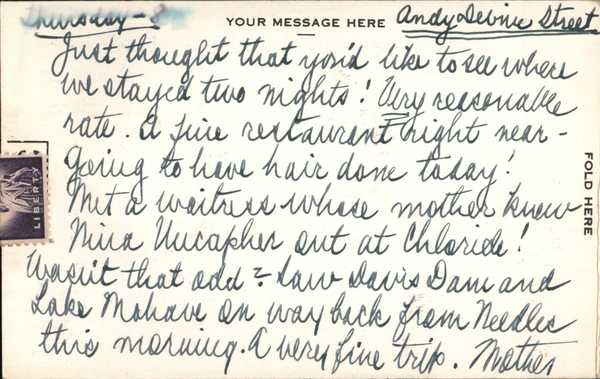 Thursday - YOUR MESSAGE HERE Andy Devine Street
Just thought that you'd like to see where
we stayed two nights! Very reasonable
rate. A fine restaurant right near -
Going to have hair done today!
Met a waitress whose mother knew
Nina Uncapher out at Chloride!
Wasn't that odd? Saw Davis Dam and
Lake Mohave on way back from Needles
this morning. A very fine trip. Mother
LIBERTY
FOLD HERE